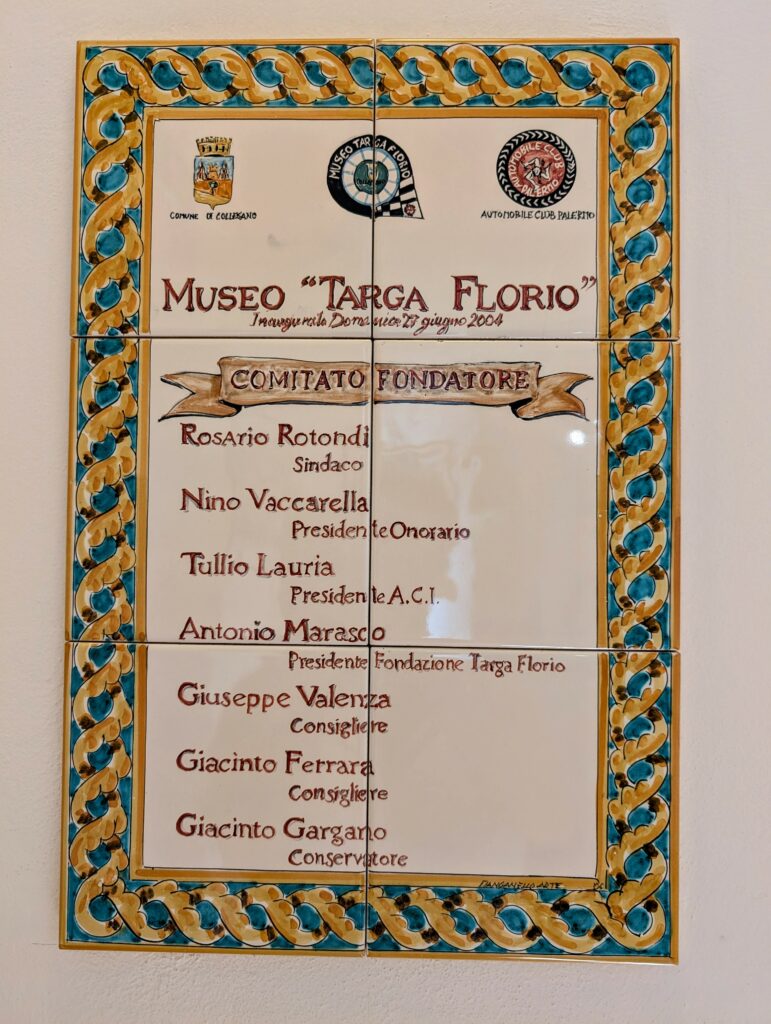 MUSEO TARGA FLORIO
AUTOMOBILE CLUB
PALERMO
COMUNE DI COLLESANO
AUTOMOBILE CLUB PALERMO
MUSEO “TARGA FLORIO”
Inaugurato Domenica 27 giugno 2004
COMITATO FONDATORE
Rosario Rotondi
Sindaco
Nino Vaccarella
Presidente Onorario
Tullio Lauria
Presidente A.C.I.
Antonio Marasco
Presidente Fondazione Targa Florio
Giuseppe Valenza
Consigliere
Giacinto Ferrara
Consigliere
Giacinto Gargano
Conservatore